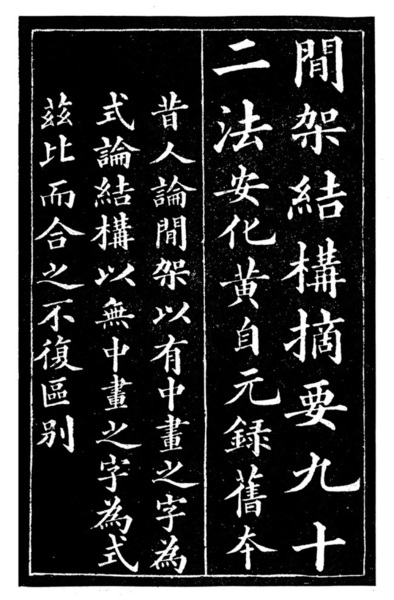 閒架結構摘要九十
二法安化黄自元録舊本
昔人論閒架以有中畫之字為
式論結構以無中畫之字為式
茲比而合之不復區别